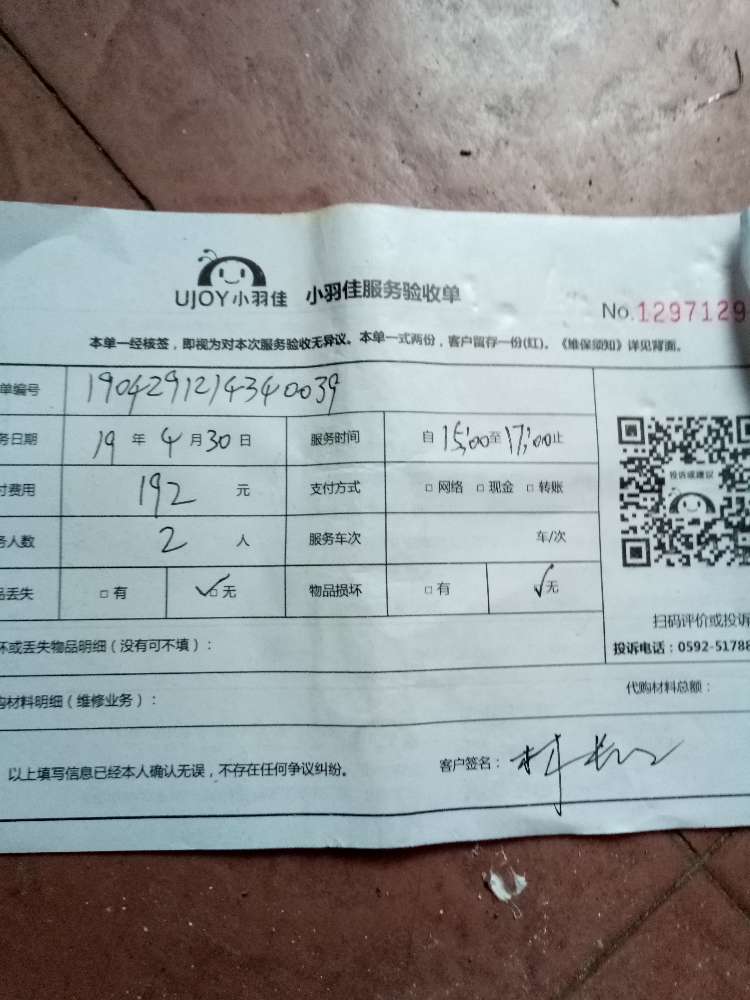 UJOY小羽佳 小羽佳服务验收单
No.1297129
本单一经核签，即视为对本次服务验收无异议。本单一式两份，客户留存一份(红)。《维保须知》详见背面。
单编号 1904291214340039
务日期 19 年 4 月 30 日 服务时间 自 15:00 至 17:00 止
付费用 192 元 支付方式 □ 网络 □ 现金 □ 转账
务人数 2 人 服务车次 车/次
品丢失 □ 有 ☑ 无 物品损坏 □ 有 ☑ 无
投诉或建议
扫码评价或投诉
投诉电话：0592-51788
坏或丢失物品明细（没有可不填）：
购材料明细（维修业务）： 代购材料总额：
以上填写信息已经本人确认无误，不存在任何争议纠纷。 客户签名：